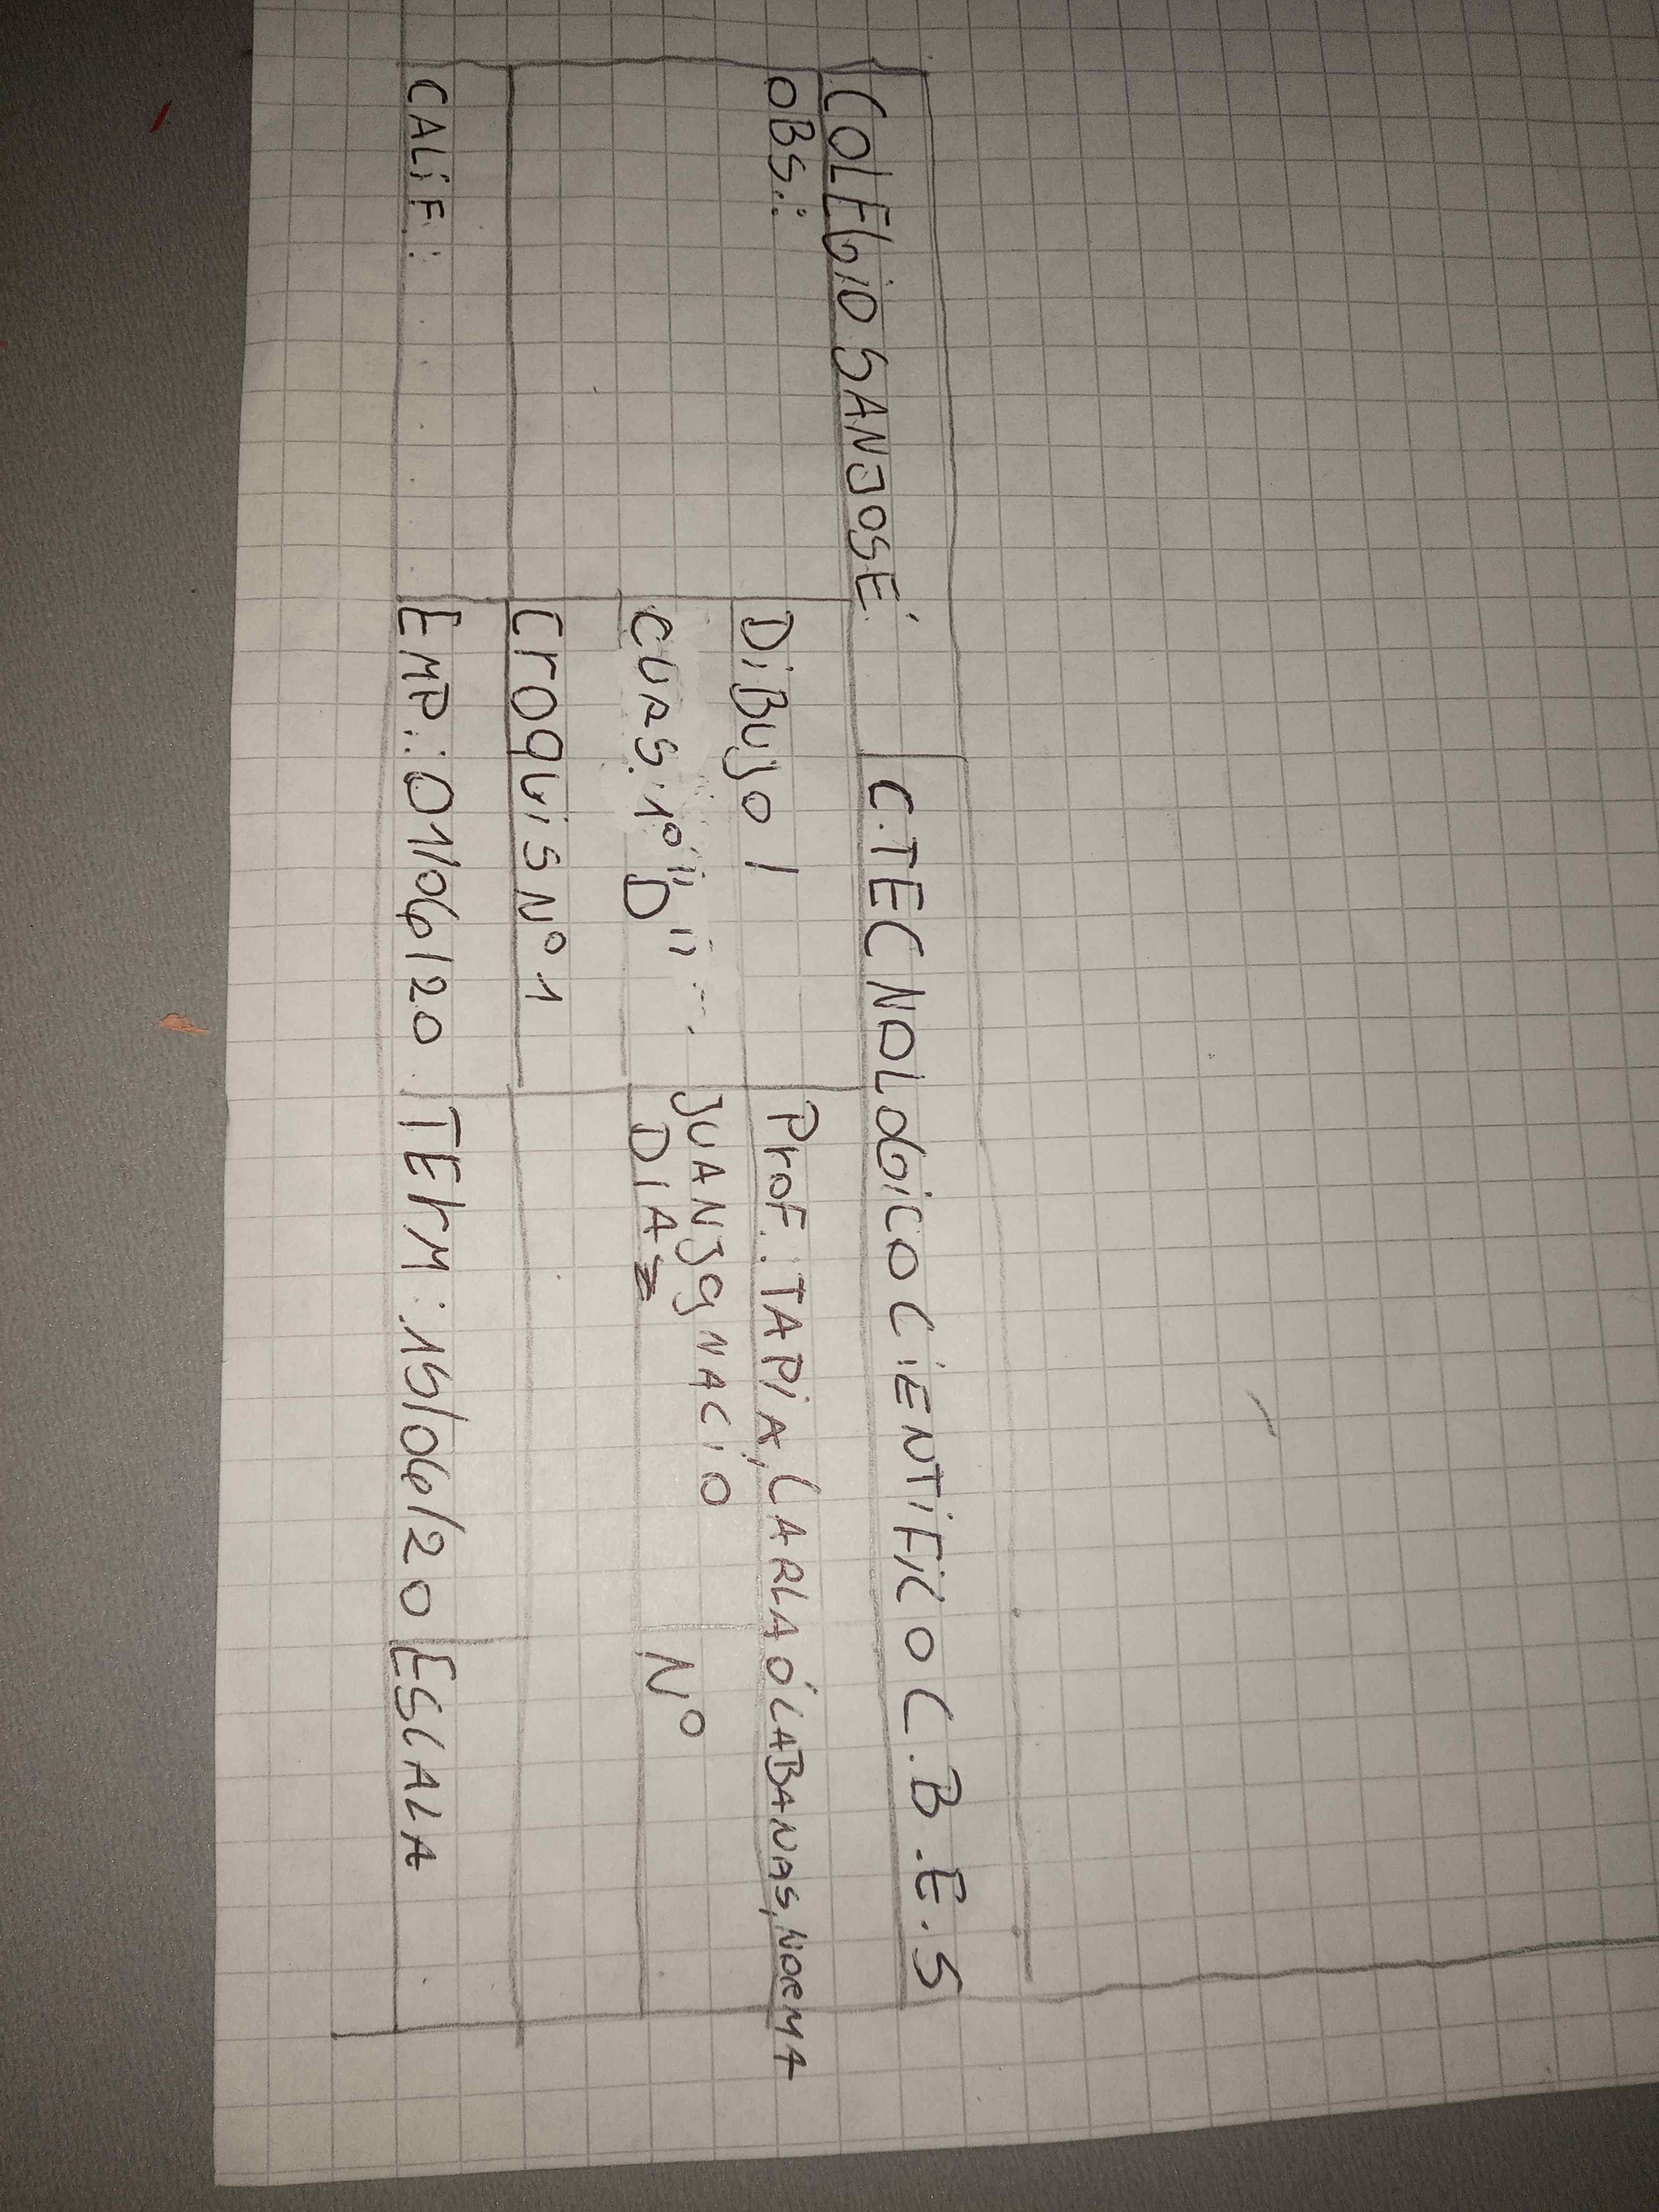 COLEGIO SAN JOSE´ C.TECNOLOGICO CIENTIFICO C.B.E.S
OBS.: DiBujo I Prof.: TAPiA, CARLA Ó CABANAS, NORMA
CURS.: 1º "D" JUAN JgNACIO
DIAZ Nº
CroquiS Nº 1
CALiF.: EMP.: 01/06/20 TErM: 15/06/20 ESCALA